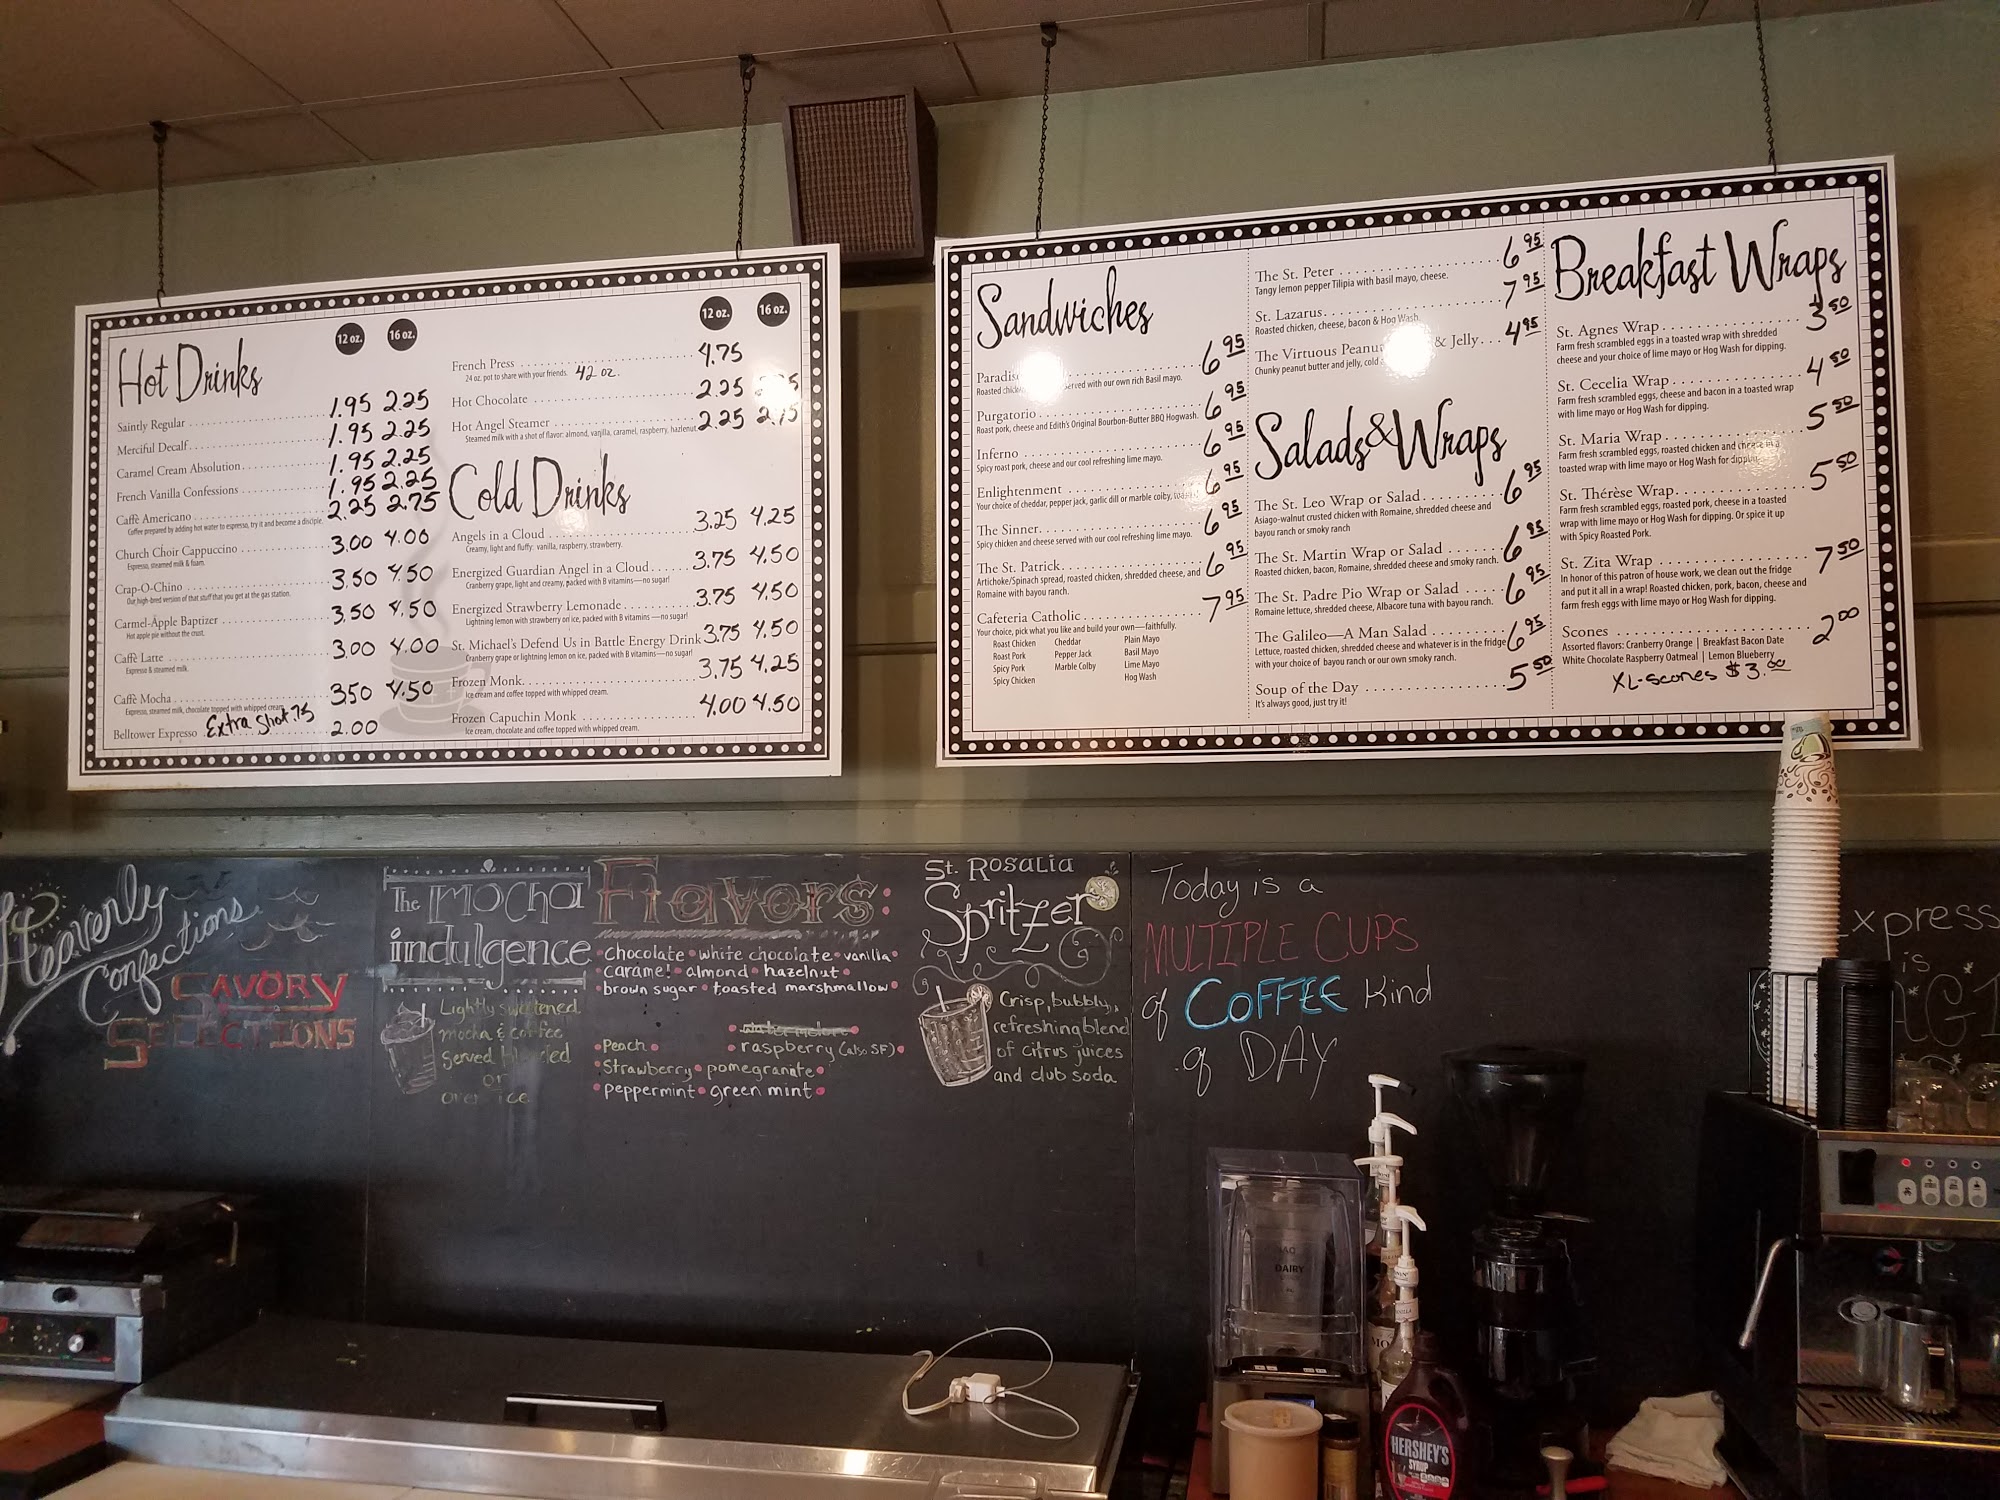 Hot Drinks
12 oz. 16 oz.
Saintly Regular 1.95 2.25
Merciful Decalf 1.95 2.25
Caramel Cream Absolution 1.95 2.25
French Vanilla Confessions 1.95 2.25
Caffè Americano 2.25 2.75
Coffee prepared by adding hot water to espresso, try it and become a disciple.
Church Choir Cappuccino 3.00 4.00
Espresso, steamed milk & foam.
Crap-O-Chino 3.50 4.50
Our high-bred version of that stuff that you get at the gas station.
Carmel-Apple Baptizer 3.50 4.50
Hot apple pie without the crust.
Caffè Latte 3.00 4.00
Espresso & steamed milk.
Caffè Mocha 3.50 4.50
Espresso, steamed milk, chocolate topped with whipped cream.
Belltower Expresso Extra Shot .75 2.00
12 oz. 16 oz.
French Press 4.75
24 oz. pot to share with your friends. 42 oz.
Hot Chocolate 2.25
Hot Angel Steamer 2.25 2.75
Steamed milk with a shot of flavor: almond, vanilla, caramel, raspberry, hazlenut
Cold Drinks
Angels in a Cloud 3.25 4.25
Creamy, light and fluffy: vanilla, raspberry, strawberry.
Energized Guardian Angel in a Cloud 3.75 4.50
Cranberry grape, light and creamy, packed with B vitamins—no sugar!
Energized Strawberry Lemonade 3.75 4.50
Lightning lemon with strawberry on ice, packed with B vitamins—no sugar!
St. Michael's Defend Us in Battle Energy Drink 3.75 4.50
Cranberry grape or lightning lemon on ice, packed with B vitamins—no sugar!
Frozen Monk 3.75 4.25
Ice cream and coffee topped with whipped cream.
Frozen Capuchin Monk 4.00 4.50
Ice cream, chocolate and coffee topped with whipped cream.
Sandwiches
6.95
Roasted served with our own rich Basil mayo.
Purgatorio 6.95
Roast pork, cheese and Edith's Original Bourbon-Butter BBQ Hogwash.
Inferno 6.95
Spicy roast pork, cheese and our cool refreshing lime mayo.
Enlightenment 6.95
Your choice of cheddar, pepper jack, garlic dill or marble colby,
The Sinner 6.95
Spicy chicken and cheese served with our cool refreshing lime mayo.
The St. Patrick 6.95
Artichoke/Spinach spread, roasted chicken, shredded cheese, and
Romaine with bayou ranch.
Cafeteria Catholic 7.95
Your choice, pick what you like and build your own—faithfully.
Roast Chicken Cheddar Plain Mayo
Roast Pork Pepper Jack Basil Mayo
Spicy Pork Marble Colby Lime Mayo
Spicy Chicken Hog Wash
The St. Peter 6.95
Tangy lemon pepper Tilipia with basil mayo, cheese.
St. Lazarus 7.95
Roasted chicken, cheese, bacon & Hog Wash.
The Virtuous Peanut & Jelly 4.95
Chunky peanut butter and jelly, cold
Salads & Wraps
The St. Leo Wrap or Salad 6.95
Asiago-walnut crusted chicken with Romaine, shredded cheese and
bayou ranch or smoky ranch
The St. Martin Wrap or Salad 6.95
Roasted chicken, bacon, Romaine, shredded cheese and smoky ranch.
The St. Padre Pio Wrap or Salad 6.95
Romaine lettuce, shredded cheese, Albacore tuna with bayou ranch.
The Galileo—A Man Salad 6.95
Lettuce, roasted chicken, shredded cheese and whatever is in the fridge
with your choice of bayou ranch or our own smoky ranch.
Soup of the Day 5.50
It's always good, just try it!
Breakfast Wraps
St. Agnes Wrap 3.50
Farm fresh scrambled eggs in a toasted wrap with shredded
cheese and your choice of lime mayo or Hog Wash for dipping.
St. Cecelia Wrap 4.50
Farm fresh scrambled eggs, cheese and bacon in a toasted wrap
with lime mayo or Hog Wash for dipping.
St. Maria Wrap 5.50
Farm fresh scrambled eggs, roasted chicken and cheese in a
toasted wrap with lime mayo or Hog Wash for dipping.
St. Thérèse Wrap 5.50
Farm fresh scrambled eggs, roasted pork, cheese in a toasted
wrap with lime mayo or Hog Wash for dipping. Or spice it up
with Spicy Roasted Pork.
St. Zita Wrap 7.50
In honor of this patron of house work, we clean out the fridge
and put it all in a wrap! Roasted chicken, pork, bacon, cheese and
farm fresh eggs with lime mayo or Hog Wash for dipping.
Scones 2.00
Assorted flavors: Cranberry Orange | Breakfast Bacon Date
White Chocolate Raspberry Oatmeal | Lemon Blueberry
XL-scones $3.00
Heavenly
Confections
Savory
Selections
The Mocha
indulgence
Lightly sweetened
mocha & coffee
Served blended
or
over ice
Flavors:
chocolate • white chocolate • vanilla •
caramel • almond • hazelnut •
brown sugar • toasted marshmallow •
Peach • raspberry (also SF) •
Strawberry • pomegranate •
peppermint • green mint •
St. Rosalia
Spritzer
Crisp, bubbly,
refreshing blend
of citrus juices
and club soda
Today is a
MULTIPLE CUPS
of COFFEE Kind
of DAY
xpress
is
DAIRY
HERSHEY'S
SYRUP